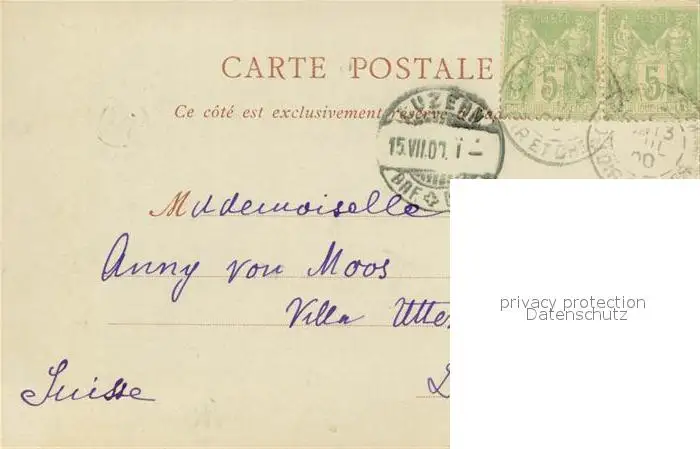 POSTE POSTE
5 5
CARTE POSTALE
Ce côté est exclusivement réservé
LUZERN
15.VII.00. 1–
BRF.
Mademoiselle
Anny von Moos
Villa
Suisse
privacy protection
Datenschutz